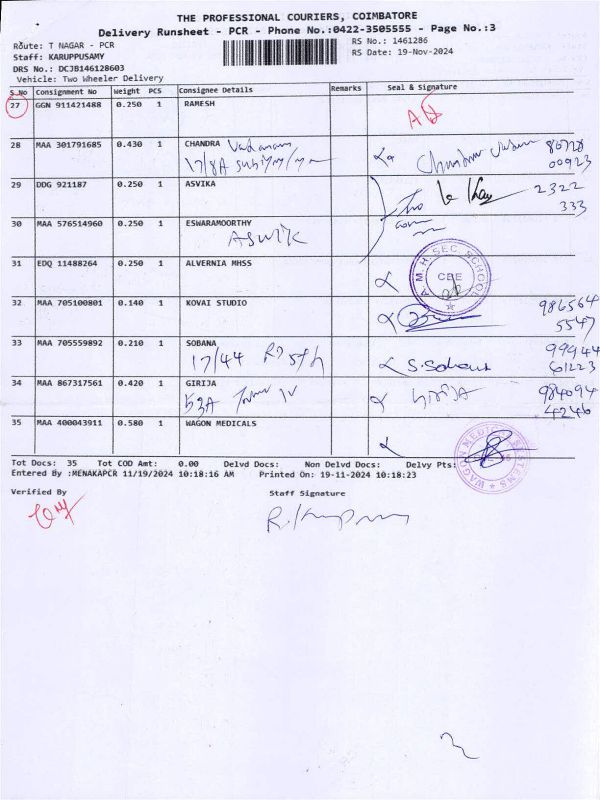 THE PROFESSIONAL COURIERS, COIMBATORE
Delivery Runsheet - PCR - Phone No.:0422-3505555 - Page No.:3
Route: T NAGAR - PCR
RS No.: 1461286
Staff: KARUPPUSAMY
RS Date: 19-Nov-2024
DRS No.: DCJB146128603
Vehicle: Two Wheeler Delivery
S.No Consignment No Weight PCS Consignee Details Remarks Seal & Signature
27 GGN 911421488 0.250 1 RAMESH
28 MAA 301791685 0.430 1 CHANDRA
17/8A
00923
29 DDG 921187 0.250 1 ASVIKA 2322
333
30 MAA 576514960 0.250 1 ESWARAMOORTHY
ASWIK
31 EDQ 11488264 0.250 1 ALVERNIA MHSS
A.M.H. SEC. SCHOOL
CBE
32 MAA 705100801 0.140 1 KOVAI STUDIO 986564
5547
33 MAA 705559892 0.210 1 SOBANA 99944
17/44 S.Sobana 61223
34 MAA 867317561 0.420 1 GIRIJA 984094
53A 4246
35 MAA 400043911 0.580 1 WAGON MEDICALS
WAGON MEDICAL SYSTEMS
Tot Docs: 35 Tot COD Amt: 0.00 Delvd Docs: Non Delvd Docs: Delvy Pts:
Entered By :MENAKAPCR 11/19/2024 10:18:16 AM Printed On: 19-11-2024 10:18:23
Verified By Staff Signature